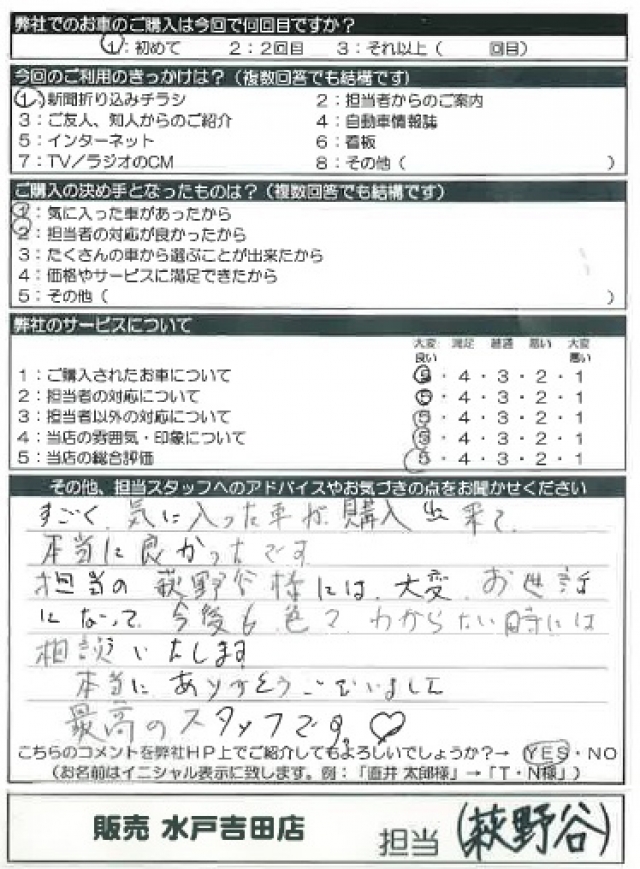 弊社でのお車のご購入は今回で何回目ですか？
1：初めて　2：2回目　3：それ以上（　　回目）
今回のご利用のきっかけは？（複数回答でも結構です）
1：新聞折り込みチラシ　2：担当者からのご案内
3：ご友人、知人からのご紹介　4：自動車情報誌
5：インターネット　6：看板
7：TV／ラジオのCM　8：その他（　　）
ご購入の決め手となったものは？（複数回答でも結構です）
1：気に入った車があったから
2：担当者の対応が良かったから
3：たくさんの車から選ぶことが出来たから
4：価格やサービスに満足できたから
5：その他（　　）
弊社のサービスについて
大変良い　満足　普通　悪い　大変悪い
1：ご購入されたお車について　5・4・3・2・1
2：担当者の対応について　5・4・3・2・1
3：担当者以外の対応について　5・4・3・2・1
4：当店の雰囲気・印象について　5・4・3・2・1
5：当店の総合評価　5・4・3・2・1
その他、担当スタッフへのアドバイスやお気づきの点をお聞かせください
すごく、気に入った車が、購入出来て、
本当に良かったです
担当の萩野谷様には、大変、お世話
になって、今後も色々、わからない時には
相談いたします
本当にありがとうございました
最高のスタッフです。♡
こちらのコメントを弊社HP上でご紹介してもよろしいでしょうか？→ YES・NO
（お名前はイニシャル表示に致します。例：「直井 太郎様」→「T・N様」）
販売 水戸吉田店　担当（萩野谷）